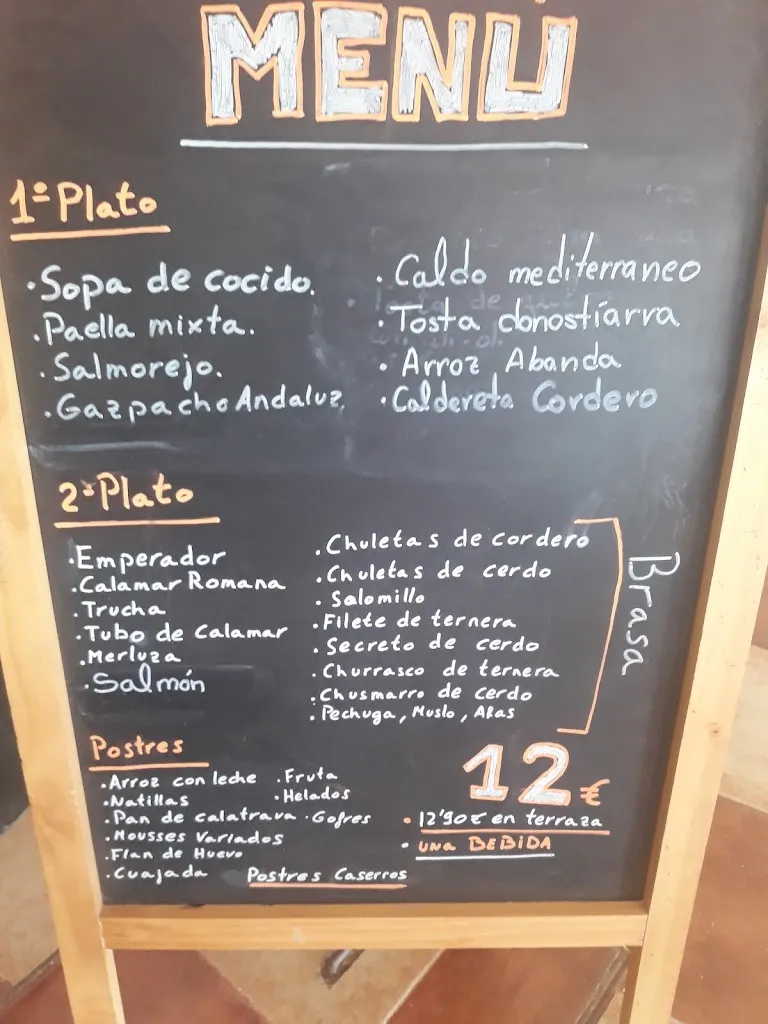 MENÚ
1º Plato
· Sopa de cocido.
· Paella mixta.
· Salmorejo.
· Gazpacho Andaluz.
· Caldo mediterraneo
· Tosta donostíarra
· Arroz Abanda
· Caldereta Cordero
2º Plato
· Emperador
· Calamar Romana
· Trucha
· Tubo de Calamar
· Merluza
· Salmón
· Chuletas de cordero
· Chuletas de cerdo
· Solomillo
· Filete de ternera
· Secreto de cerdo
· Churrasco de ternera
· Chusmarro de cerdo
· Pechuga, Muslo, Alas
Brasa
Postres
· Arroz con leche
· Natillas
· Pan de calatrava
· Mousses Variados
· Flan de Huevo
· Cuajada
· Fruta
· Helados
· Gofres
Postres Caserros
12€
· 12'90€ en terraza
· UNA BEBIDA